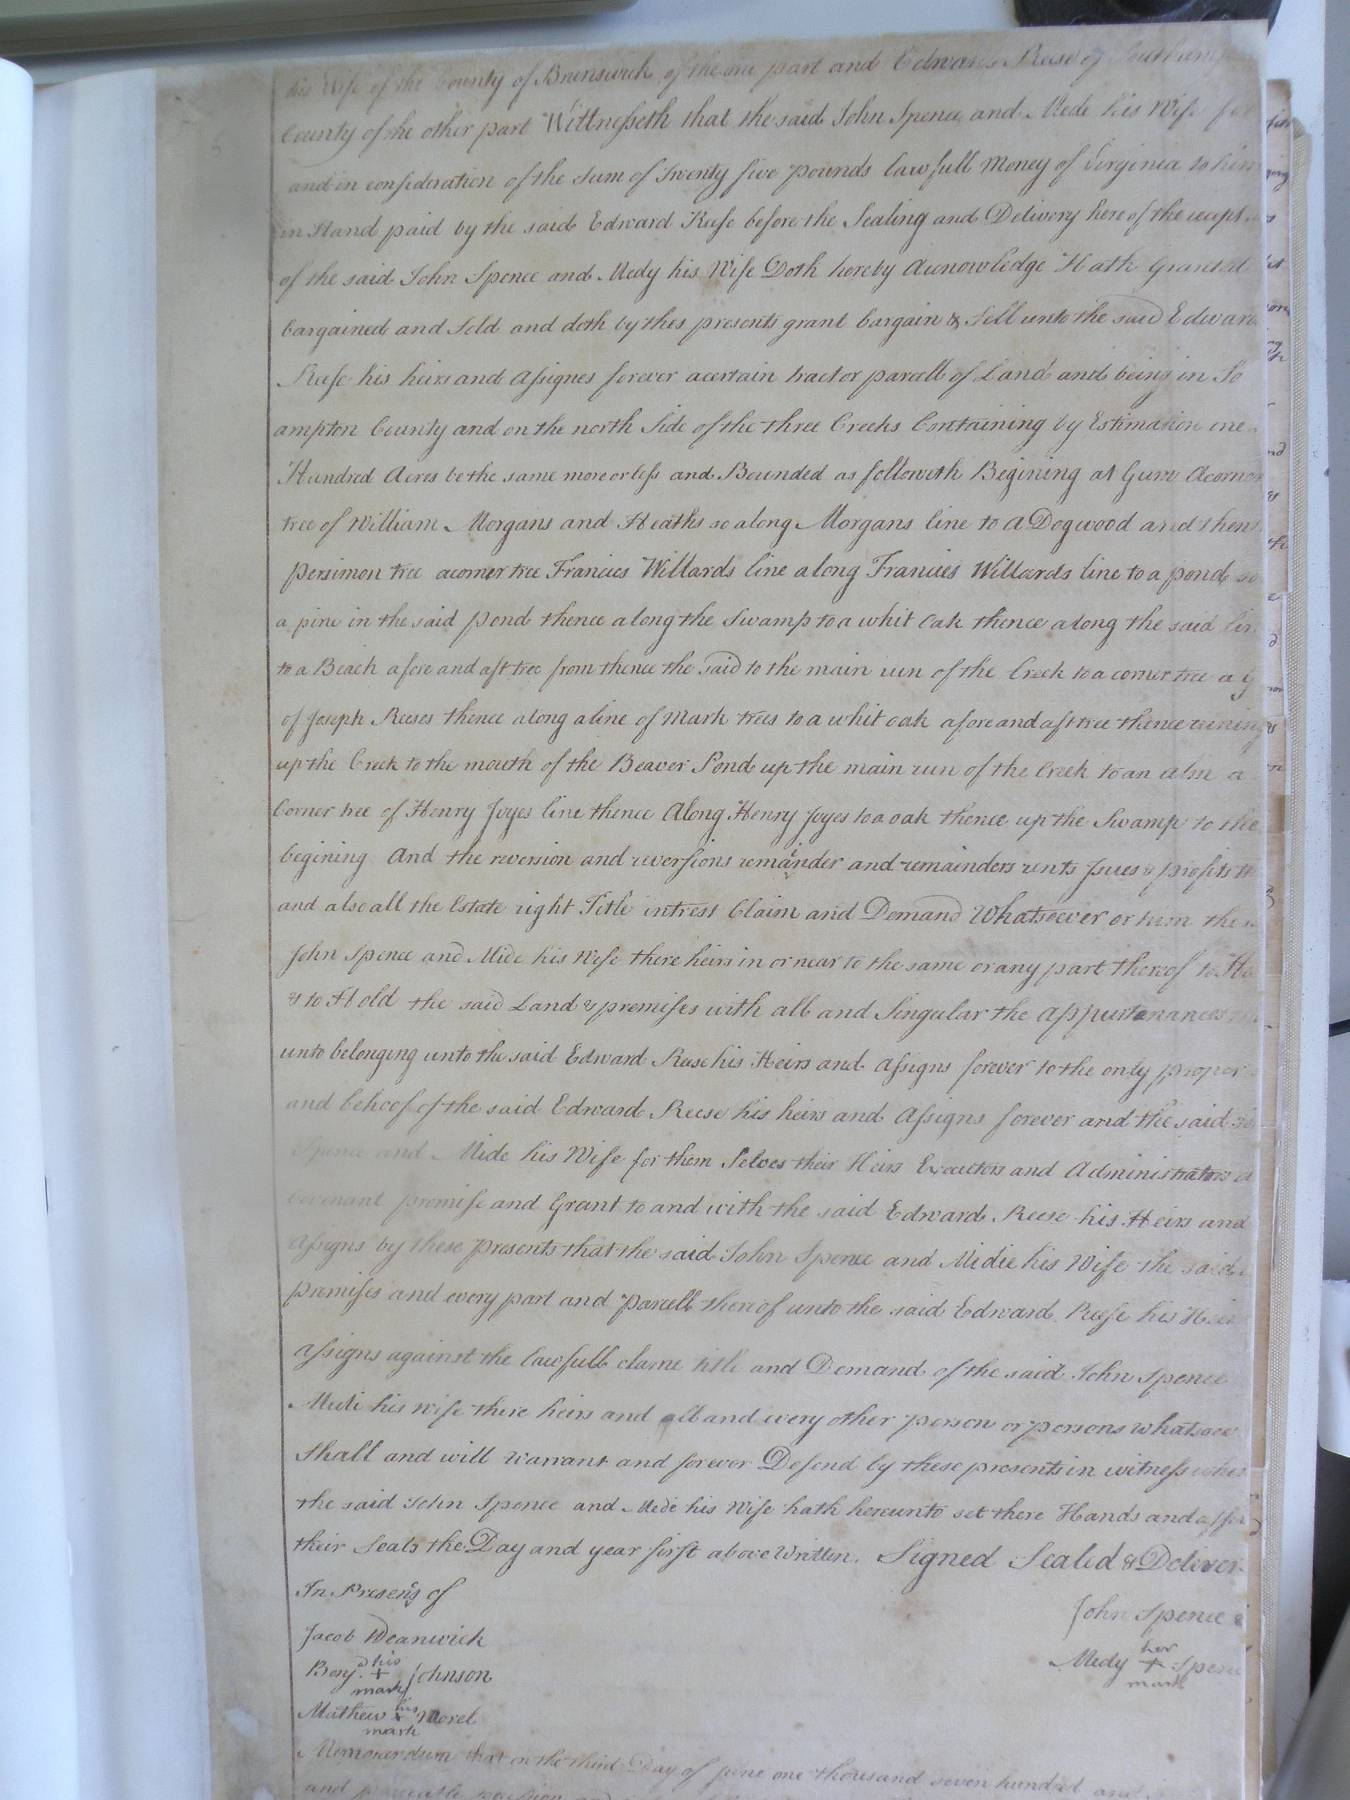 his Wife of the County of Brunswick of the one part and Edward Reese of Southamp
County of the other part Wittnesseth that the said John Spence and Mede his Wife for
and in consideration of the Sum of Twenty five pounds lawfull Money of Virginia to him
in Hand paid by the said Edward Reese before the Sealing and Delivery here of the receipt
of the said John Spence and Medy his Wife Doth hereby Acknowlidge Hath Granted
bargained and Sold and doth by thes presents grant bargain & Sell unto the said Edward
Reese his heirs and Assignes forever acertain tract or parcell of Land and being in So
ampton County and on the north Side of the three Creeks Containing by Estimation one
Hundred Acres be the same more or less and Bounded as followeth Begining at Gum Acornor
tree of William Morgans and Heaths so along Morgans line to a Dogwood and then
persimon tree acorner tree Francies Willards line along Francies Willards line to a pond so
a pine in the said pond thence along the Swamp to a whit oak thence along the said lin
to a Beach a fore and aft tree from thence the said to the main run of the Creek to a corner tree a g
of Joseph Reeses thence along a line of Mark trees to a whit oak a fore and aft tree thence runing
up the Creek to the mouth of the Beaver Pond up the main run of the Creek to an elm a
Corner tree of Henry Joyes line thence Along Henry Joyes to a oak thence up the Swamp to the
begining And the reversion and reversions remainder and remainders rents Jsues & profits
and also all the Estate right Title intrest Claim and Demand Whatsoever or them the
John Spence and Mide his Wife there heirs in or near to the same or any part thereof to Ha
& to Hold the said Land & premises with all and Singular the appurtenances
unto belonging unto the said Edward Reese his Heirs and Assigns forever to the only proper
and behoof of the said Edward Reese his heirs and Assigns forever and the said
Spence and Mide his Wife for them Selves their Heirs Executors and Administrators
covenant promise and Grant to and with the said Edward Reese his Heirs and
Assigns by these presents that the said John Spence and Midie his Wife the said
premises and every part and parcell thereof unto the said Edward Reese his Heir
Assigns against the lawfull clame title and Demand of the said John Spence
Midi his wife there heirs and all and every other person or persons whatsoev
Shall and will warrant and forever Defend by these presents in witness wher
the said John Spence and Mede his Wife hath hereunto set there Hands and affix
their Seals the Day and year first above Written. Signed Sealed & Deliver
In Presens of
John Spence
Jacob Deanwick
his
her
Benj. + Johnson
Medy + Spence
mark
mark
his
Mathew + Morel
mark
Memorandum that on the third Day of June one thousand seven hundred and
and peaceable